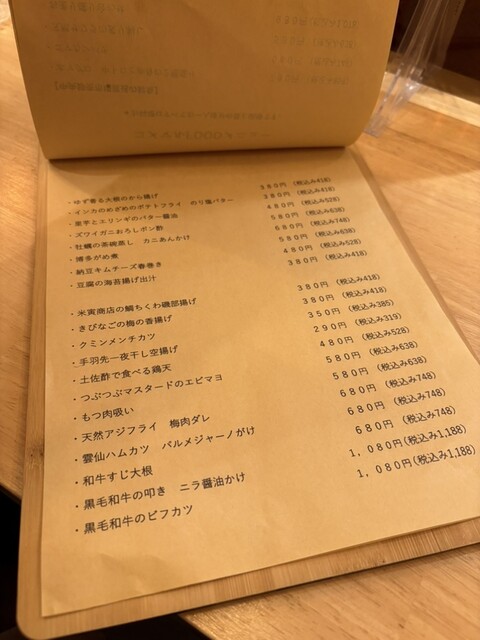 ・ゆず香る大根のから揚げ 380円 (税込み418)
・インカのめざめのポテトフライ のり塩バター 380円 (税込み418)
・里芋とエリンギのバター醤油 480円 (税込み528)
・ズワイガニおろしポン酢 580円 (税込み638)
・牡蠣の茶碗蒸し カニあんかけ 680円 (税込み748)
・博多がめ煮 580円 (税込み638)
・納豆キムチーズ春巻き 480円 (税込み528)
・豆腐の海苔揚げ出汁 380円 (税込み418)
・米寅商店の鯛ちくわ磯部揚げ 380円 (税込み418)
・きびなごの梅の香揚げ 380円 (税込み418)
・クミンメンチカツ 350円 (税込み385)
・手羽先一夜干し空揚げ 290円 (税込み319)
・土佐酢で食べる鶏天 480円 (税込み528)
・つぶつぶマスタードのエビマヨ 580円 (税込み638)
・もつ肉吸い 580円 (税込み638)
・天然アジフライ 梅肉ダレ 680円 (税込み748)
・雲仙ハムカツ パルメジャーノがけ 680円 (税込み748)
・和牛すじ大根 680円 (税込み748)
・黒毛和牛の叩き ニラ醤油かけ 1,080円(税込み1,188)
・黒毛和牛のビフカツ 1,080円(税込み1,188)